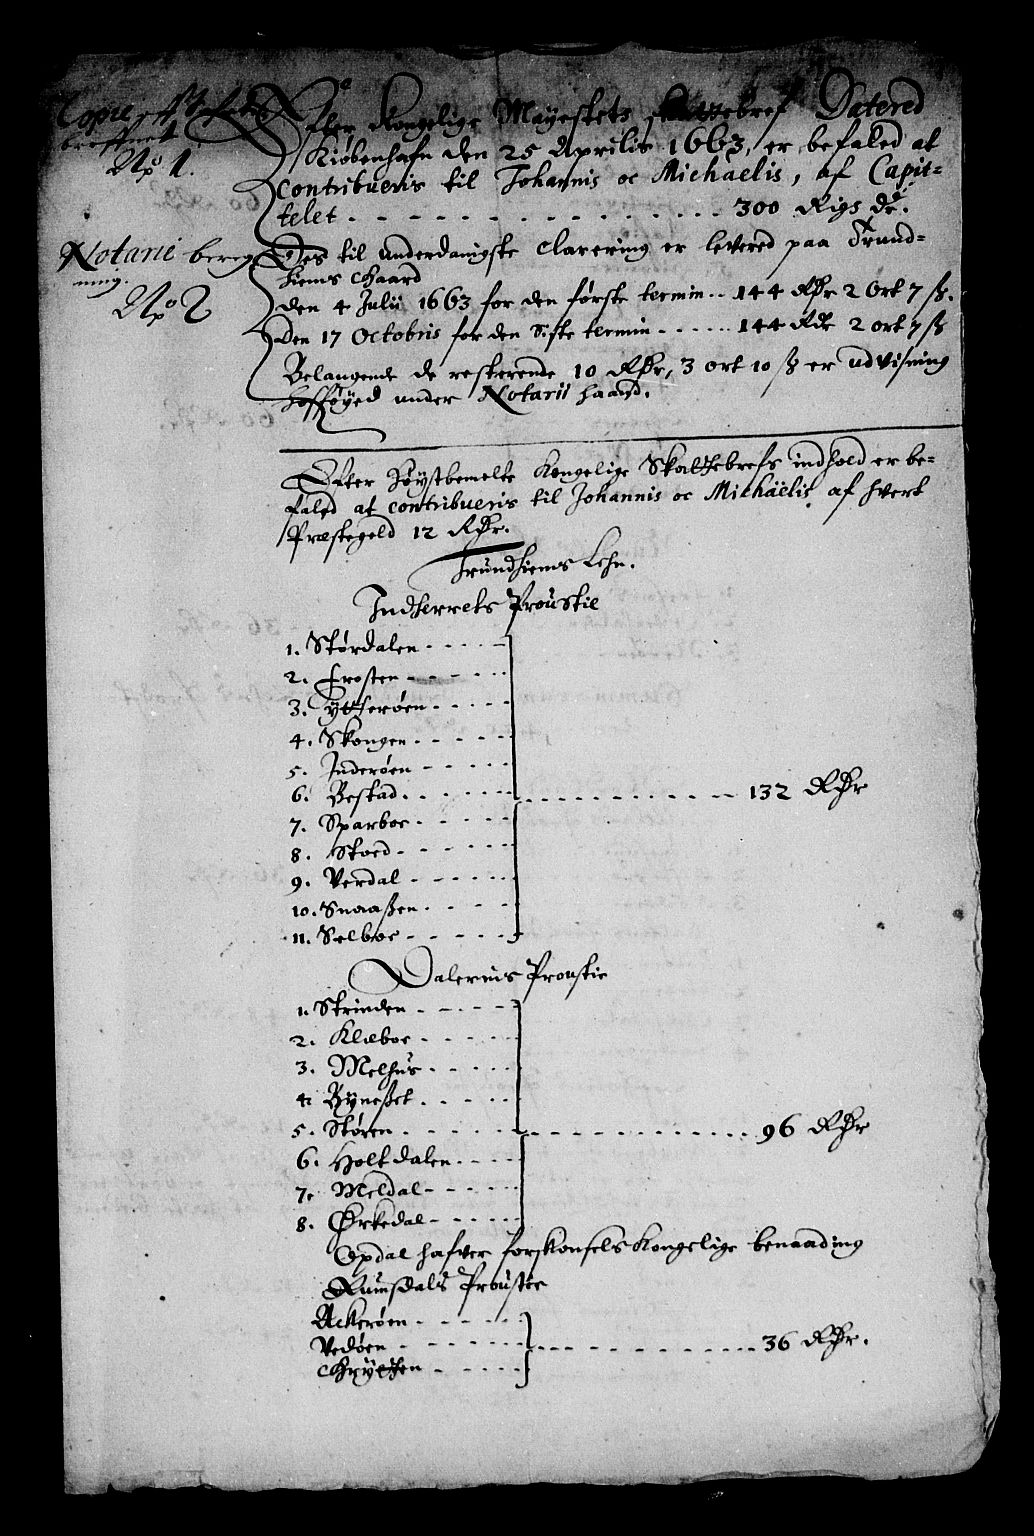 Copie af
breffuet
No 1.
Effter Kongelige Mayestets skattebref Datered
Kiøbenhafn den 25 Aprilis 1663, er befaled at
contribueris til Johannis oc Michaelis, af Capit-
telet - - - - - - - - - - - - - - 300 Rigs dr.
Notarii bereg
ning.
No 2
Des til underdanigste clarering er levered paa Trund-
hiems Gaard
den 4 Julii 1663 for den første termin - - 144 Rdr 2 ort 7 ß.
Den 17 Octobris for den Siste termin - - - - - - 144 Rdr 2 ort 7 ß
Belangende de resterende 10 Rdr, 3 ort 10 ß er udvisning
hosføyed under Notarii haand.
Efter Høystbemelte Kongelige Skattebrefs indhold er be-
faled at contribueris til Johannis oc Michaelis af hvert
Præstegield 12 Rdr.
Trundhiems Lehn.
Indherrets Proustie
1. Størdalen - - - -
2. Frosten - - - - -
3. Ytterøen - - - -
4. Skongen - - - - -
5. Inderøen - - - -
6. Bestad - - - - - - - - - - - - - - - 132 Rdr
7. Sparboe - - - -
8. Stoed - - - - - -
9. Verdal - - - - -
10. Snaaßen - - - -
11. Selboe - - - - -
Dalernis Proustie
1. Strinden - - - - -
2. Klæboe - - - - -
3. Melhus - - - - -
4. Bÿneßet - - - -
5. Støren - - - - - - - - - - - - - - - 96 Rdr
6. Holtdalen - - -
7. Meldal - - - - -
8. Ørkedal - - - -
Opdal hafver forskonsels Kongelige benaading
Rumsdals Proustie
Ackerøen - - - - -
Vedøen - - - - - - - - - - - - - - - 36 Rdr.
Grytten - - - - -